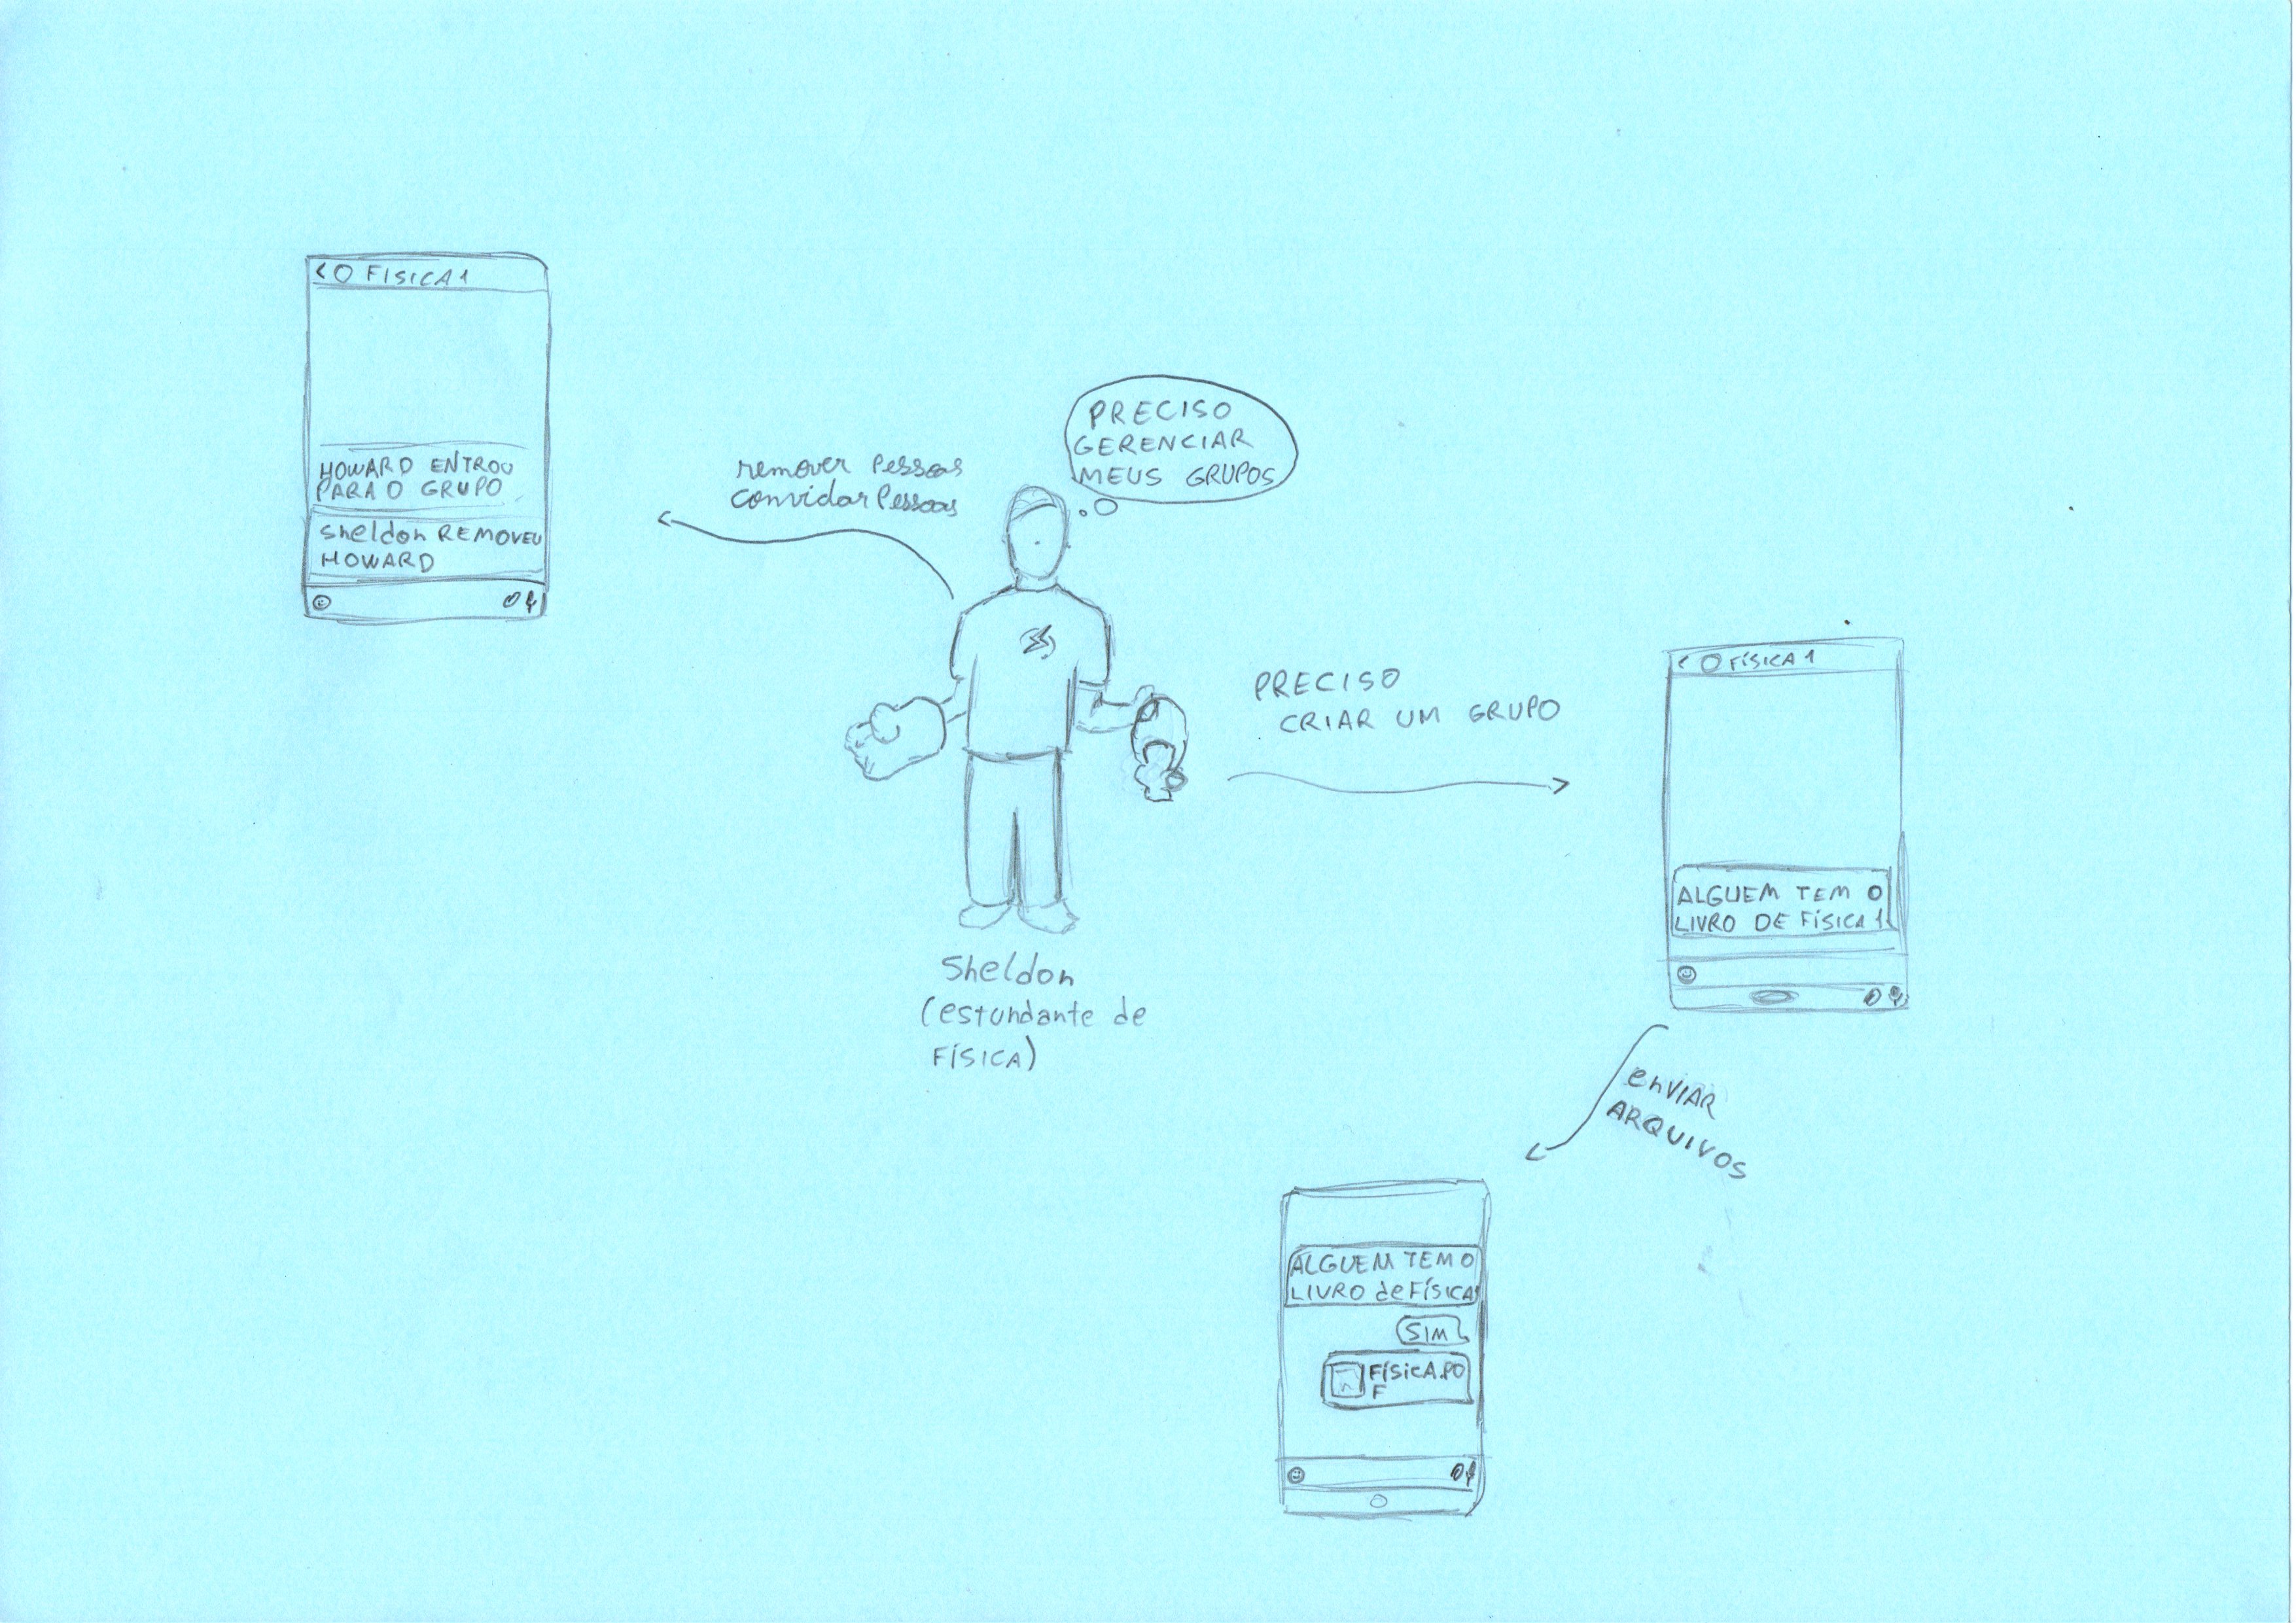 < O FISICA 1
HOWARD ENTROU
PARA O GRUPO
Sheldon REMOVEU
HOWARD
remover Pessoas
convidar Pessoas
PRECISO
GERENCIAR
MEUS GRUPOS
Sheldon
(estundante de
FÍSICA)
PRECISO
CRIAR UM GRUPO
< O FÍSICA 1
ALGUEM TEM O
LIVRO DE FÍSICA 1
enVIAR
ARQUIVOS
ALGUEM TEM O
LIVRO de FÍSICA
SIM
FÍSICA.PD
F